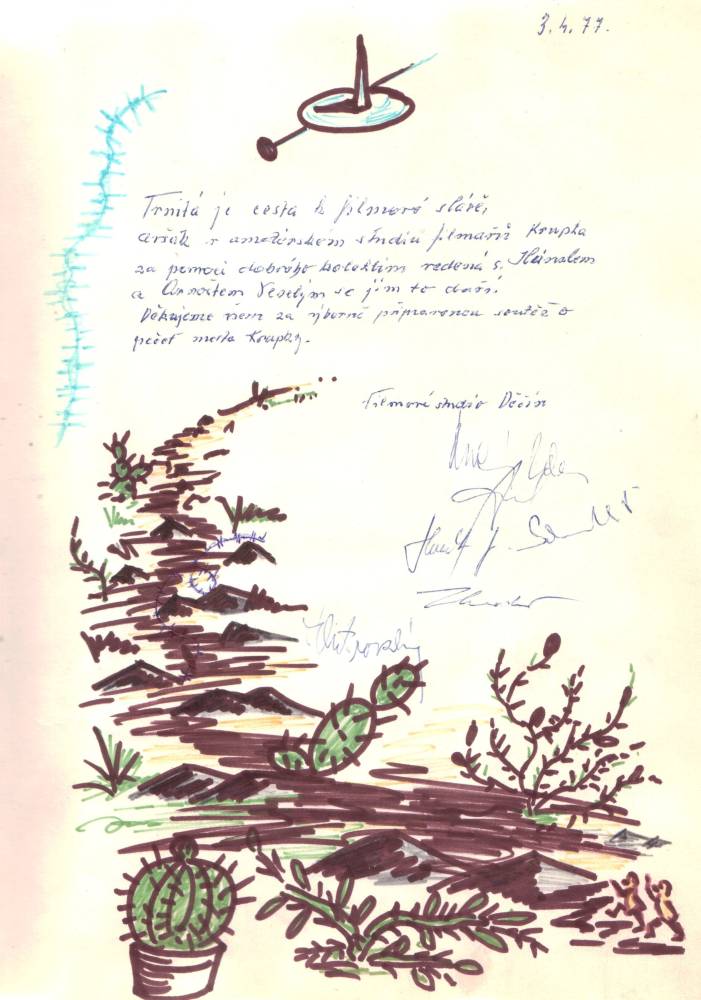 3.4.77.
Trnitá je cesta k filmové slávě,
avšak v amatérském studiu filmařů Krupka
za pomoci dobrého kolektivu vedená s. Hänslem
a Arnoštem Veselým se jim to daří.
Děkujeme všem za výborně připravenou soutěž o
pečeť města Krupky.
Filmové studio Děčín